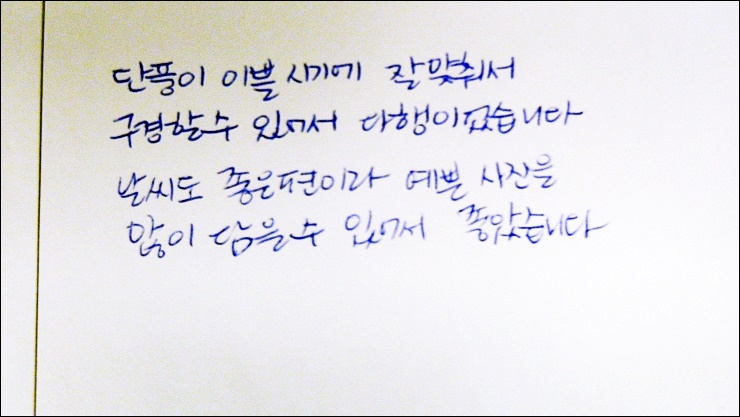 단풍이 이쁠 시기에 잘 맞춰서
구경할수 있어서 다행이였습니다
날씨도 좋은편이라 예쁜 사진을
많이 담을수 있어서 좋았습니다